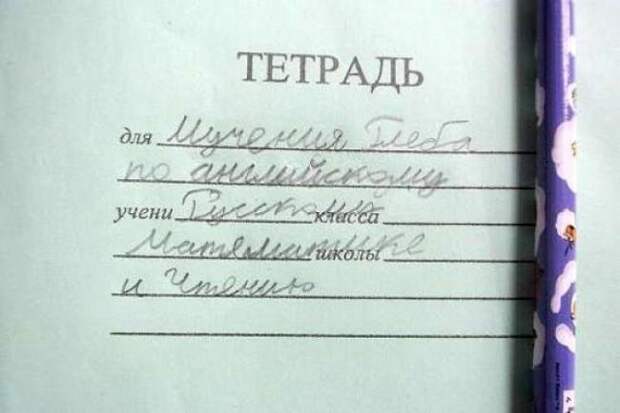 ТЕТРАДЬ
для Мучения Глеба
по английскому
учени Русскому класса
Матяматике школы
и Чтянию